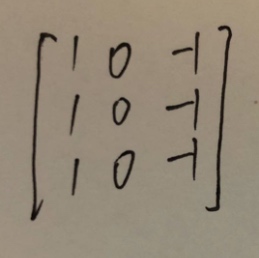 1 0 -1
1 0 -1
1 0 -1